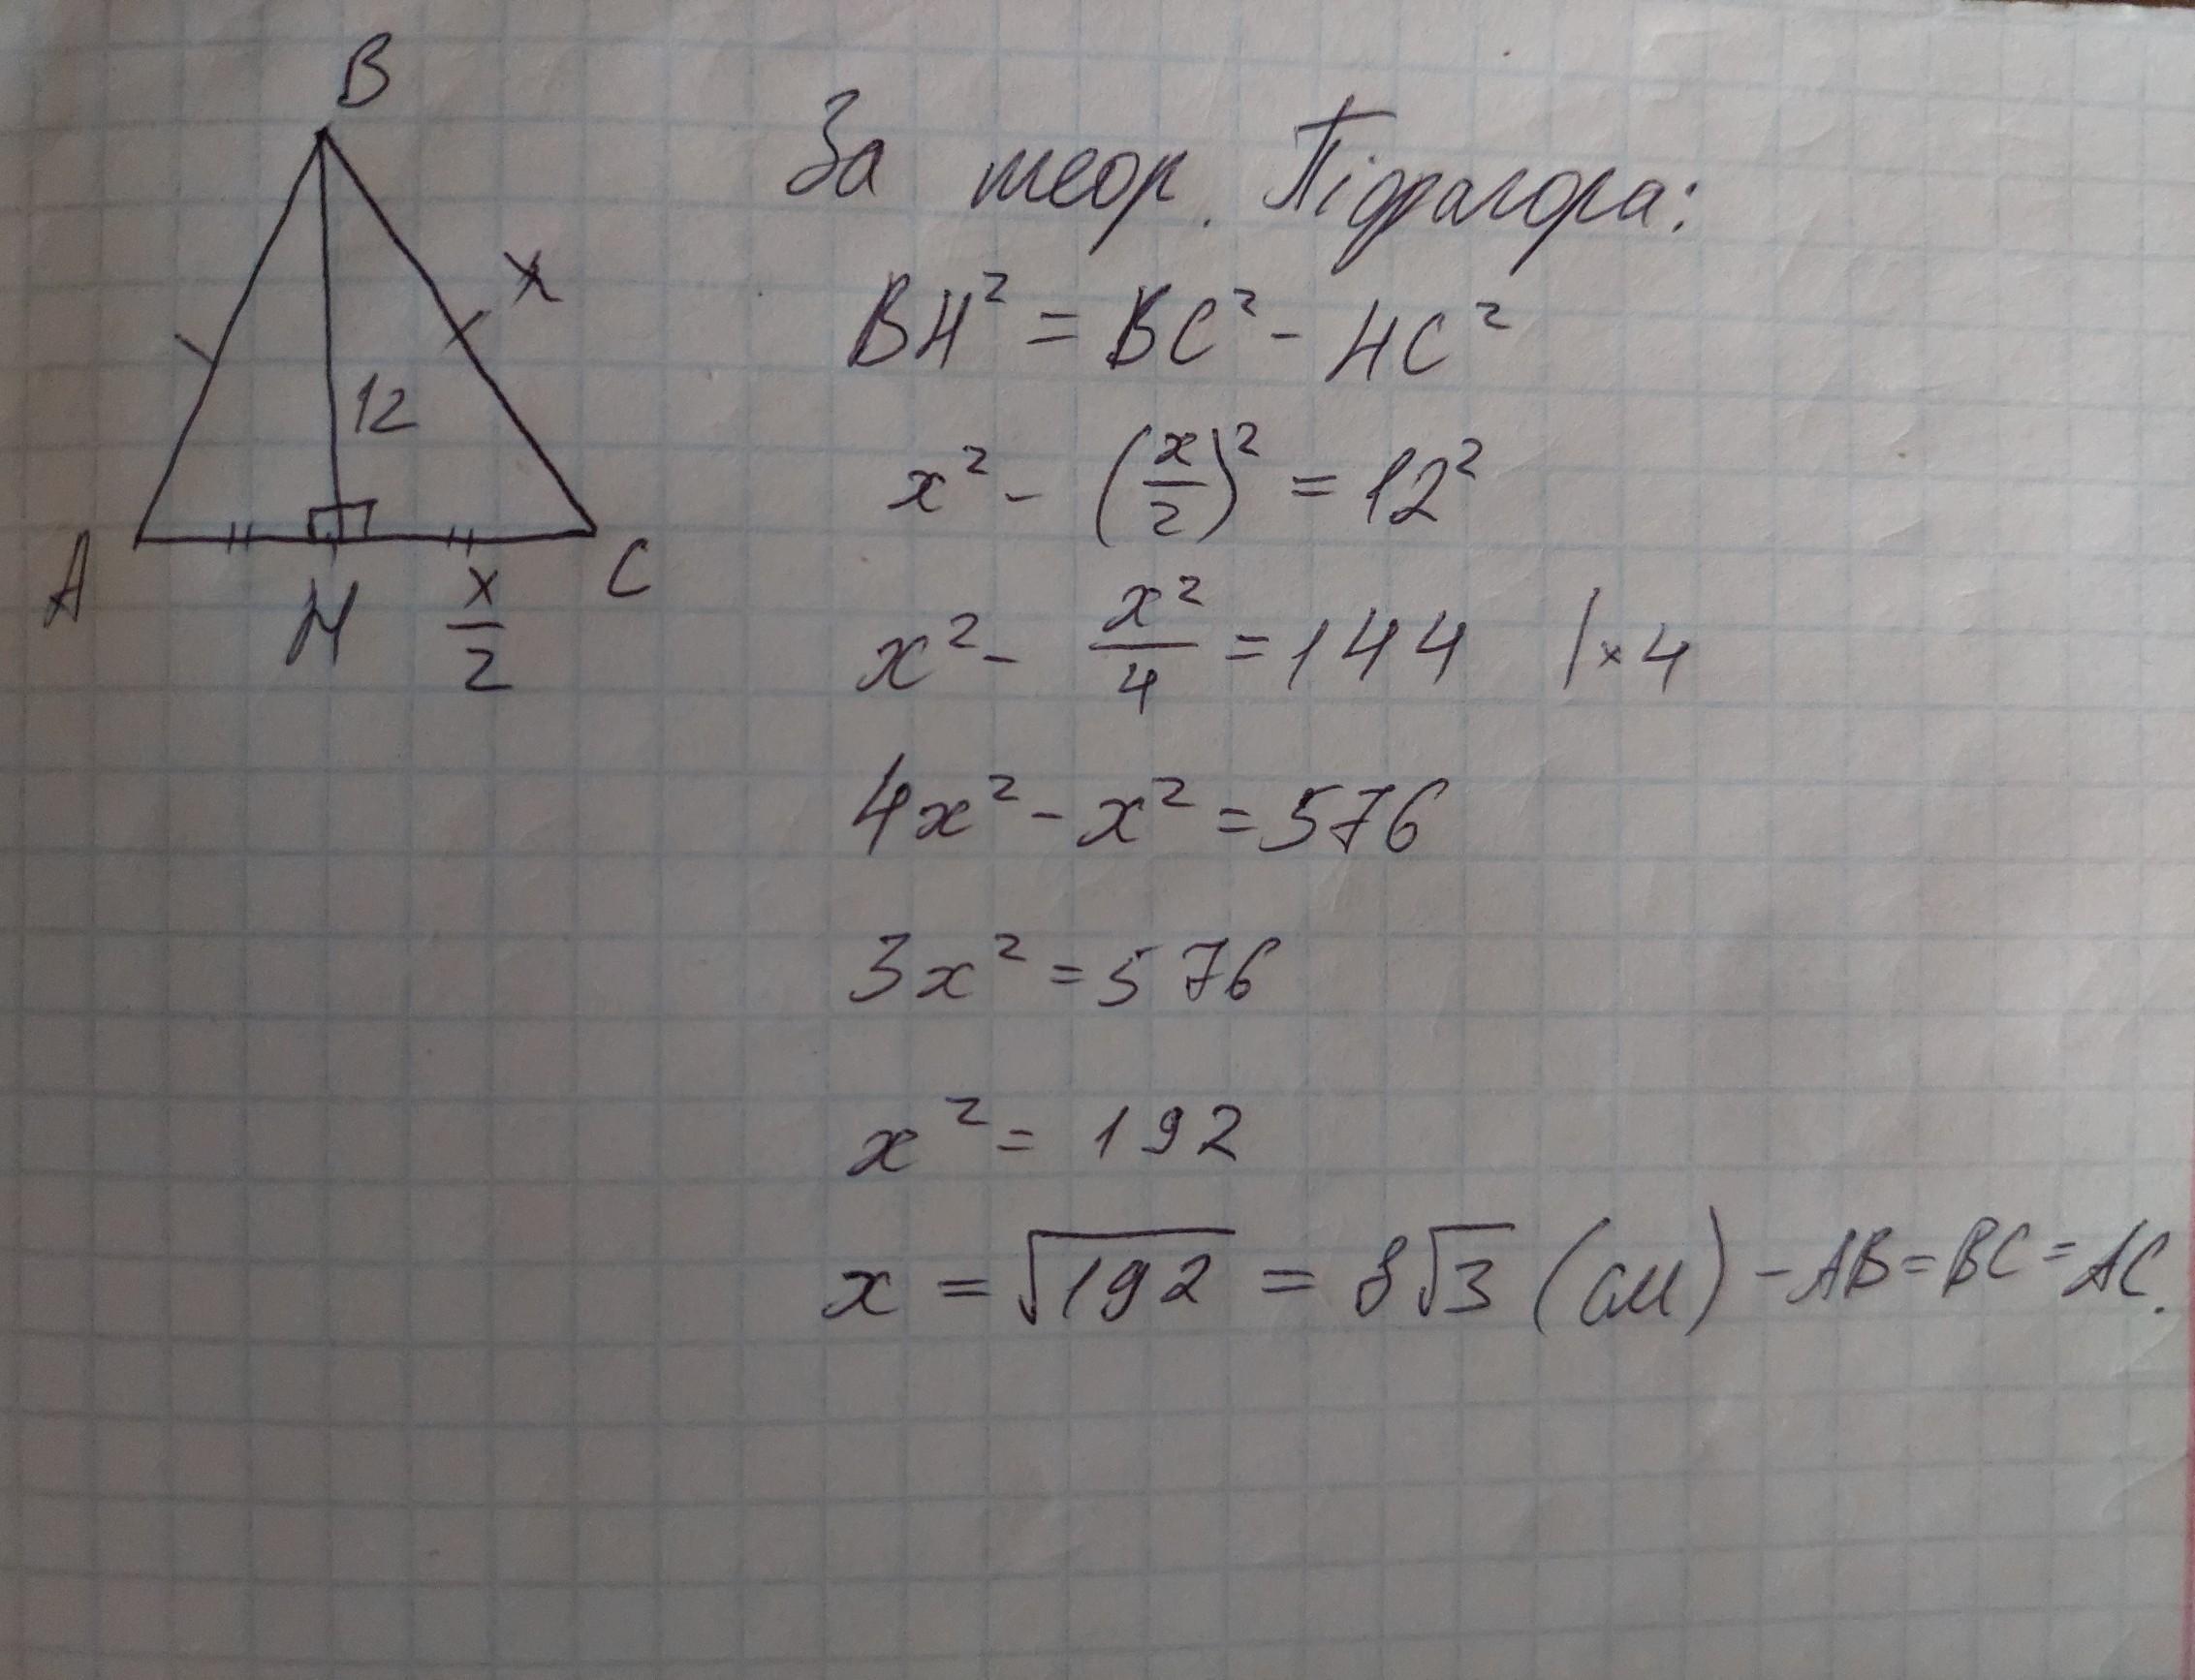 B
x
12
A
H
x/2
C
За теор. Піфагора:
BH² = BC² - HC²
x² - (x/2)² = 12²
x² - x²/4 = 144 |×4
4x² - x² = 576
3x² = 576
x² = 192
x = √192 = 8√3 (см) - AB = BC = AC.